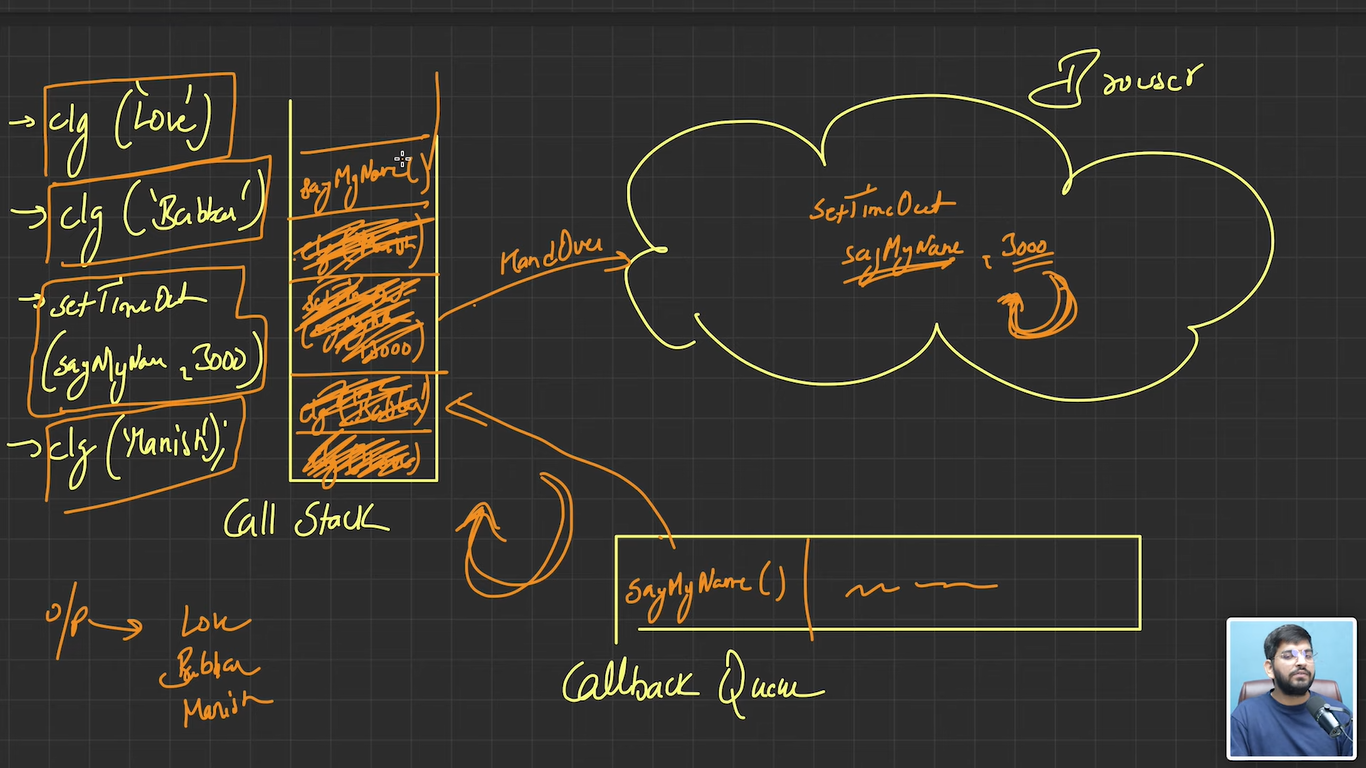 clg ('Love')
clg ('Babbar')
setTimeOut
(sayMyNam , 3000)
clg ('Manish');
sayMyName()
3000)
clg (Babba')
Call Stack
HandOver
Browser
setTimeOut
sayMyName , 3000
sayMyName ()
Callback Queue
O/P →
Love
Babbar
Manish